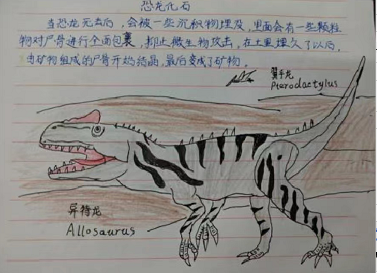 恐龙化石
当恐龙死去后，会被一些沉积物埋没，里面会有一些颗粒
物对尸骨进行全面包裹，抑止微生物攻击，在土里埋久了以后，
由矿物组成的尸骨开始结晶，最后变成了矿物。
翼手龙
Pterodactylus
异特龙
Allosaurus